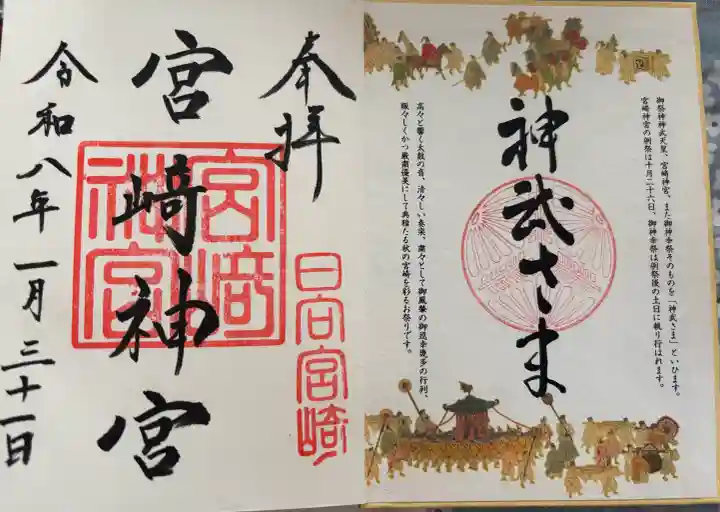 御祭神神武天皇、宮崎神宮、また御神幸祭そのものを「神武さま」といひます。
宮崎神宮の例祭は十月二十六日、御神幸祭は例祭後の土日に執り行はれます。
神武さま
高々と響く太鼓の音、清々しい奏楽、粛々として御鳳輦の御巡幸幾多の行列、
賑々しくかつ厳粛優美にして典雅たる秋の宮崎を彩るお祭りです。
奉拝
日向宮崎
宮崎神宮
宮崎
神宮
令和八年一月三十一日